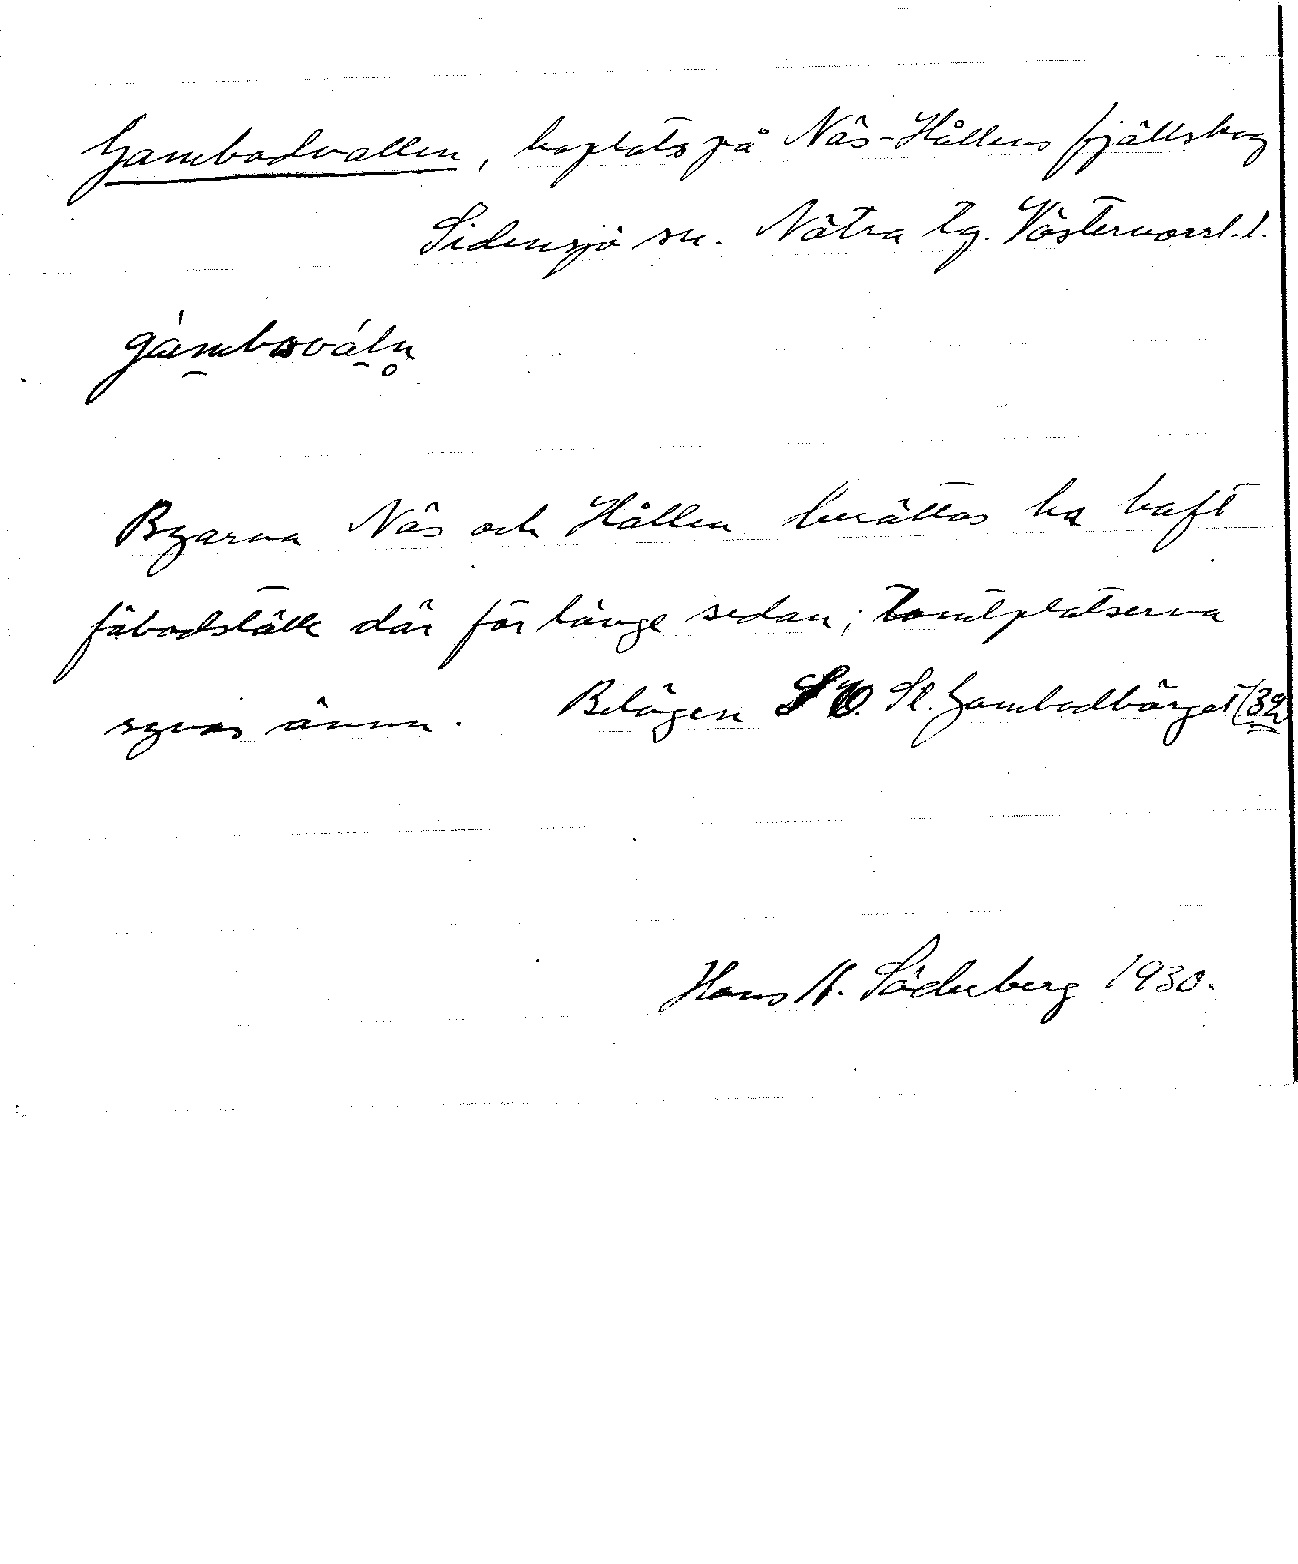 Gambodvallen, boplats på Näs-Hållens fjällskog
Sidensjö sn. Nätra tg. Västernorrl. l.
Byarna Näs och Hållen berättas ha haft
fäbodställe där för länge sedan; tomtplatserna
synas ännu. Belägen Sl. Gambodbärget (32
Hans A. Söderberg 1930.